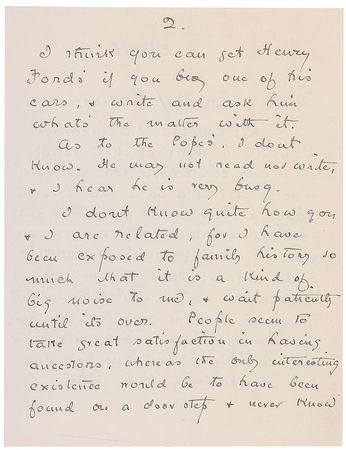 2.
I think you can get Henry
Fords' if you buy one of his
cars, & write and ask him
whats' the matter with it.
As to the Popes', I dont
know. He may not read nor write,
& I hear he is very busy.
I dont know quite how you
& I are related, for I have
been exposed to family history so
much that it is a kind of
big noise to me, & wait patiently
until its over. People seem to
take great satisfaction in having
ancestors, whereas the only interesting
existence would be to have been
found on a door step & never know